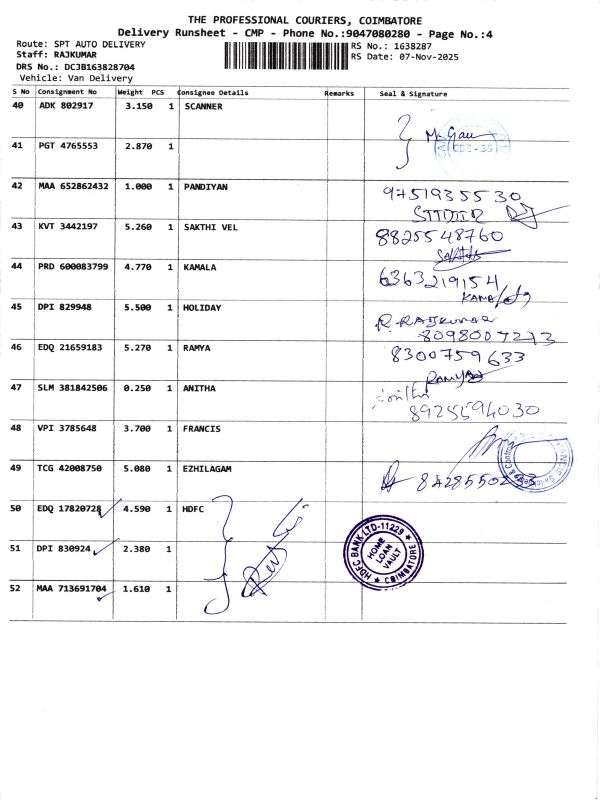 THE PROFESSIONAL COURIERS, COIMBATORE
Delivery Runsheet - CMP - Phone No.:9047080280 - Page No.:4
Route: SPT AUTO DELIVERY
Staff: RAJKUMAR
DRS No.: DCJB163828704
Vehicle: Van Delivery
RS No.: 1638287
RS Date: 07-Nov-2025
S No Consignment No Weight PCS Consignee Details Remarks Seal & Signature
40 ADK 802917 3.150 1 SCANNER
41 PGT 4765553 2.870 1
42 MAA 652862432 1.000 1 PANDIYAN 9751935530
43 KVT 3442197 5.260 1 SAKTHI VEL 8825548760
44 PRD 600083799 4.770 1 KAMALA 6363219154
45 DPI 829948 5.500 1 HOLIDAY R. RAJKUMAR
8098007273
46 EDQ 21659183 5.270 1 RAMYA 8300759633
RAMYA
47 SLM 381842506 0.250 1 ANITHA
8925594030
48 VPI 3785648 3.700 1 FRANCIS
49 TCG 42008750 5.080 1 EZHILAGAM
50 EDQ 17820728 4.590 1 HDFC
51 DPI 830924 2.380 1
52 MAA 713691704 1.610 1
HDFC BANK LTD-11229 ★ COIMBATORE ★
HOME
LOAN
VAULT